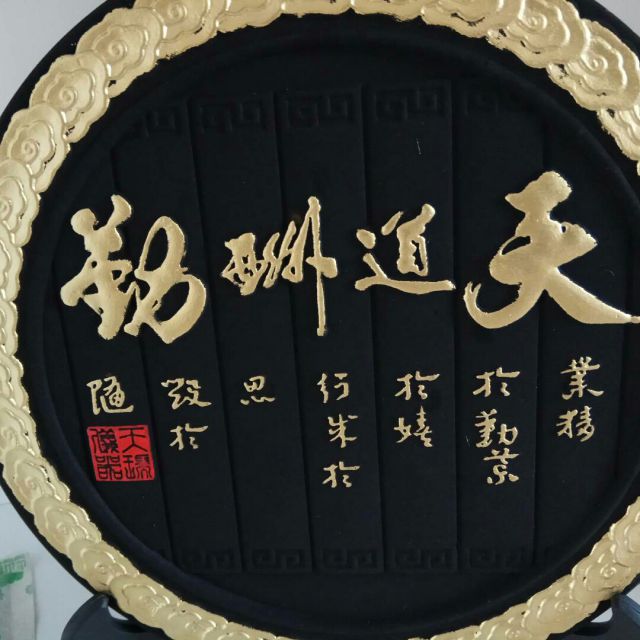 天道酬勤
業精
於勤荒
於嬉
行成於
思
毀於
隨
天
儀器